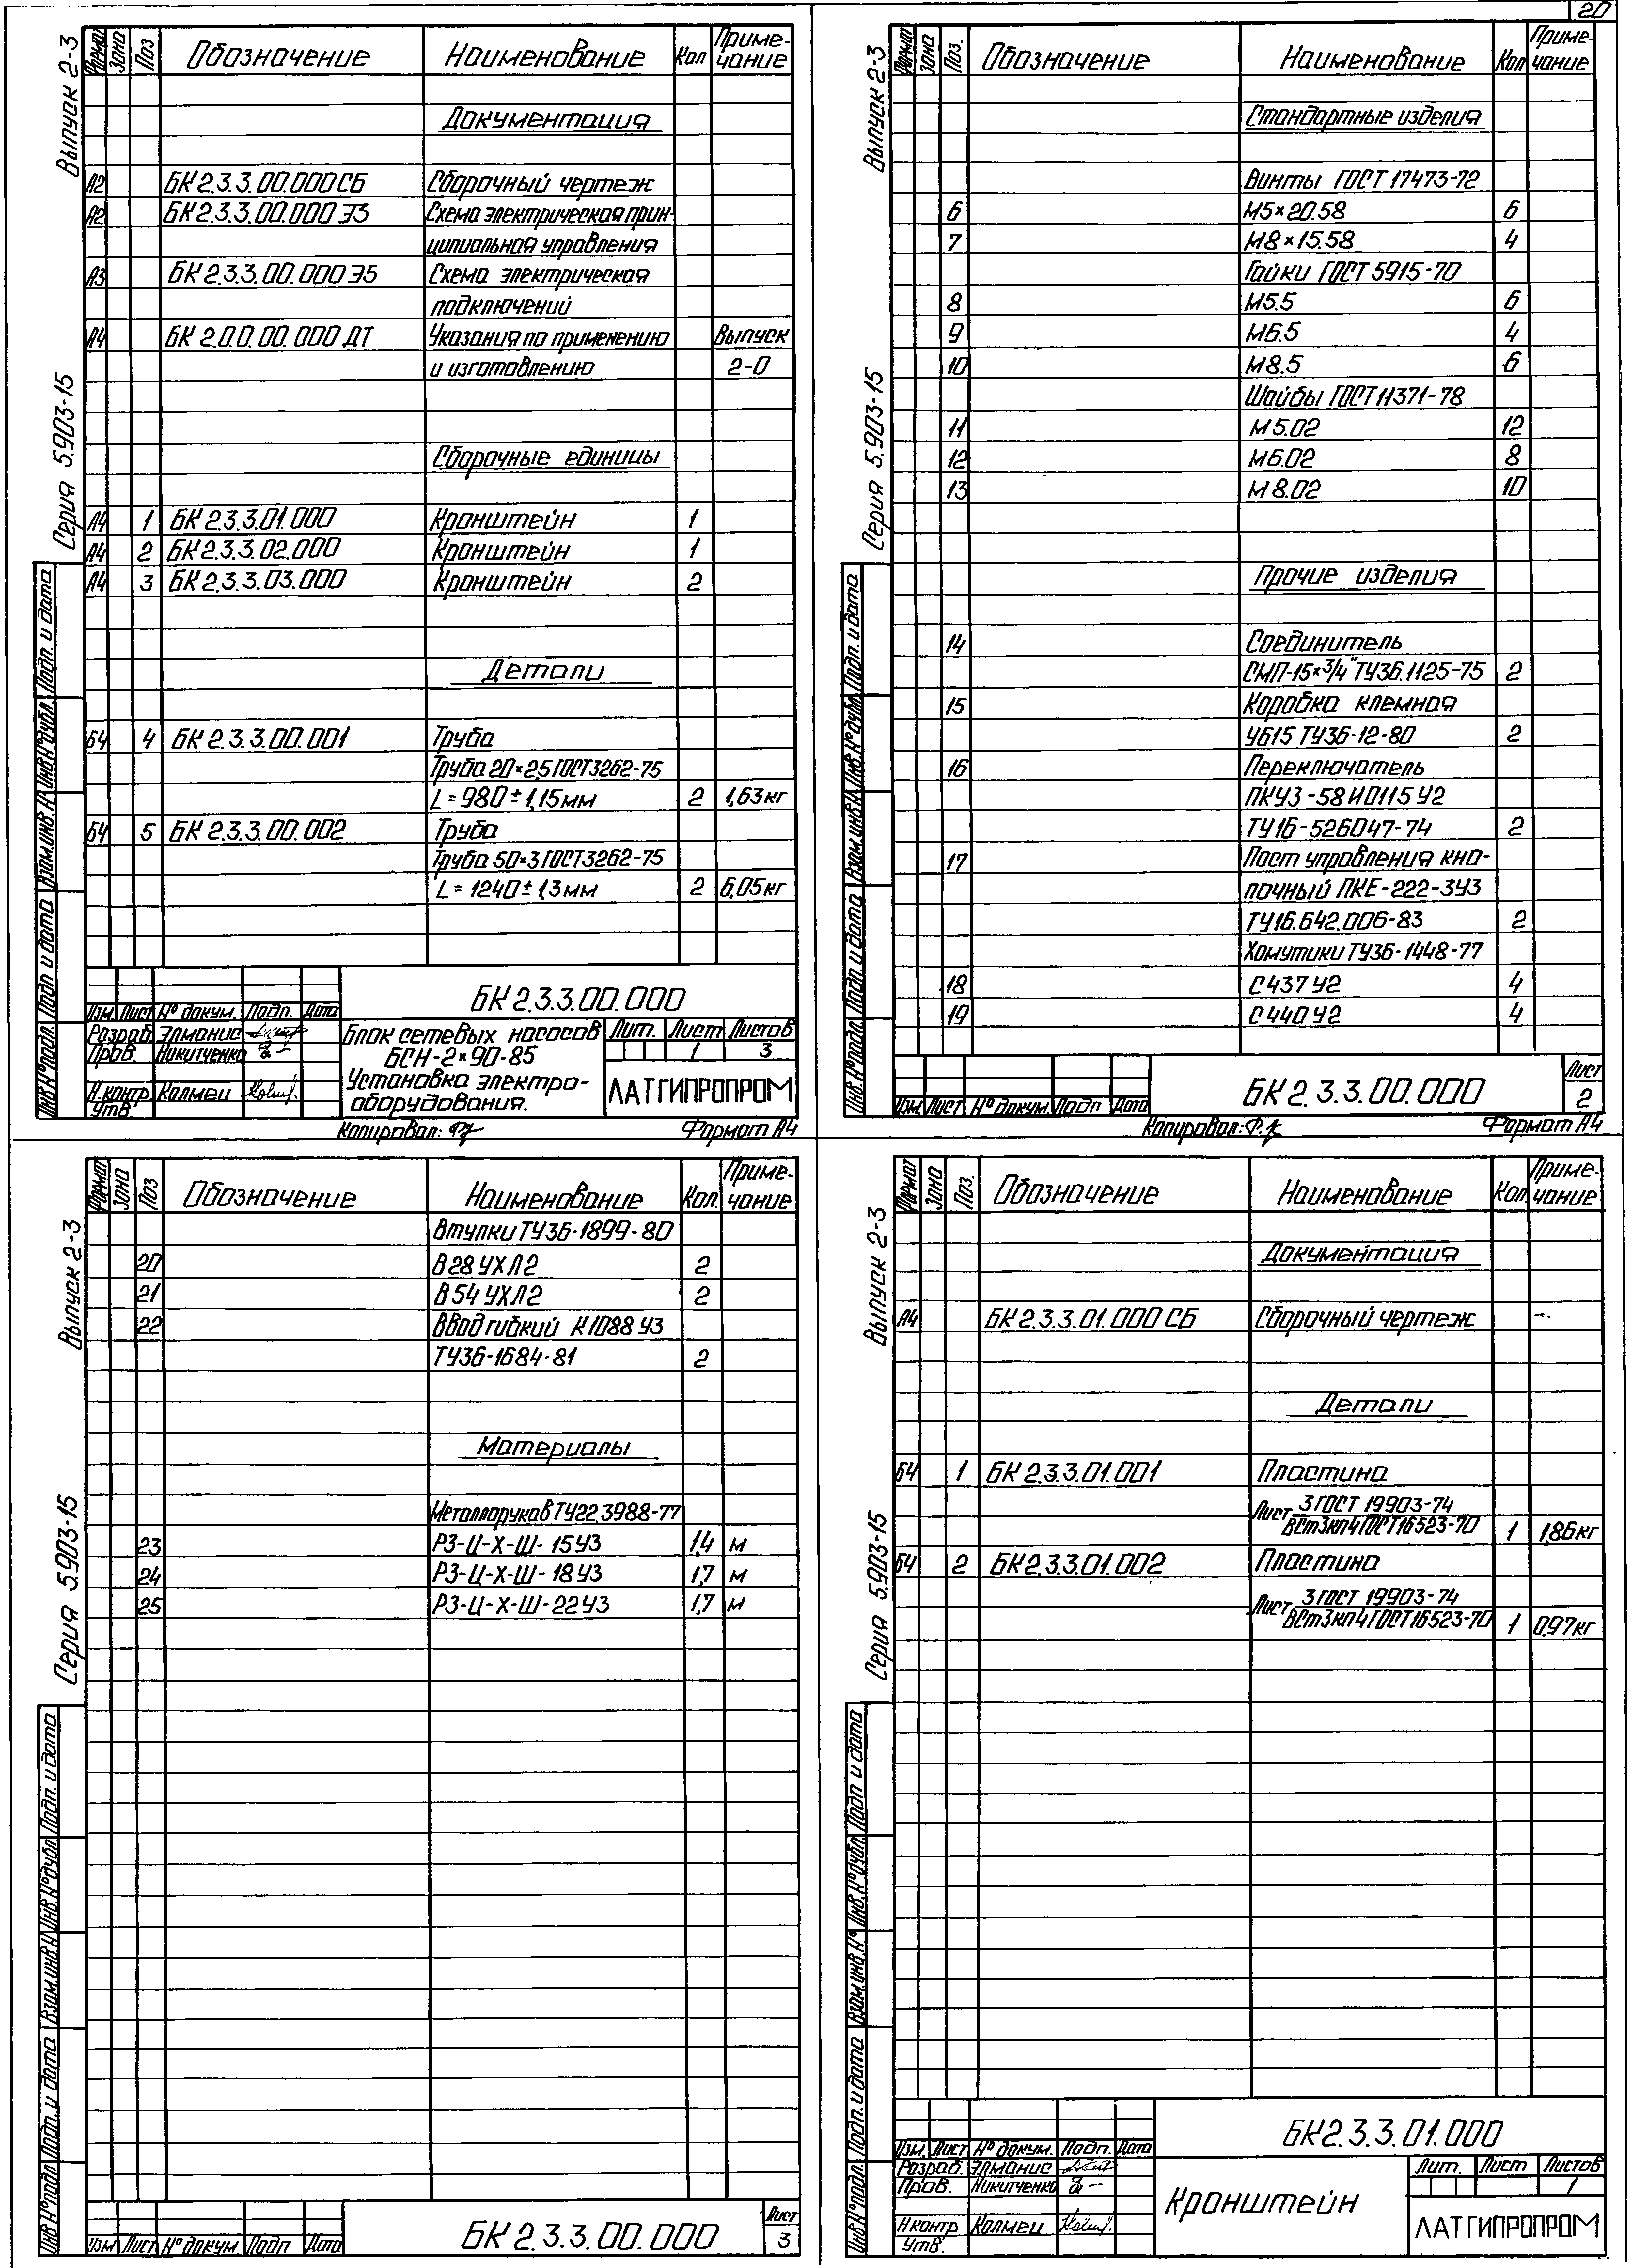 20
Выпуск 2-3
Серия 5.903-15
Формат Зона Поз Обозначение Наименование Кол Приме-
чание
Документация
А2 БК 2.3.3.00.000 СБ Сборочный чертеж
А2 БК 2.3.3.00.000 Э3 Схема электрическая прин-
ципиальная управления
А3 БК 2.3.3.00.000 Э5 Схема электрическая
подключений
А4 БК 2.0.0.00.000 ДТ Указания по применению Выпуск
и изготовлению 2-0
Сборочные единицы
А4 1 БК 2.3.3.01.000 Кронштейн 1
А4 2 БК 2.3.3.02.000 Кронштейн 1
А4 3 БК 2.3.3.03.000 Кронштейн 2
Детали
БЧ 4 БК 2.3.3.00.001 Труба
Труба 20×2,5 ГОСТ 3262-75
L = 980 ± 1,15 мм 2 1,63 кг
БЧ 5 БК 2.3.3.00.002 Труба
Труба 50×3 ГОСТ 3262-75
L = 1240 ± 1,3 мм 2 6,05 кг
Инв.№подл. Подп и дата Взам.инв.№ Инв.№дубл. Подп. и дата
БК 2.3.3.00.000
Изм. Лист № докум. Подп. Дата
Разраб. Элманис
Пров. Никитченко
Н.контр. Колмец
Утв.
Блок сетевых насосов
БСН-2×90-85
Установка электро-
оборудования.
Лит. Лист Листов
1 3
ЛАТГИПРОПРОМ
Копировал: Формат А4
Выпуск 2-3
Серия 5.903-15
Формат Зона Поз. Обозначение Наименование Кол Приме-
чание
Стандартные изделия
Винты ГОСТ 17473-72
6 М5×20.58 6
7 М8×15.58 4
Гайки ГОСТ 5915-70
8 М5.5 6
9 М6.5 4
10 М8.5 6
Шайбы ГОСТ 11371-78
11 М 5.02 12
12 М6.02 8
13 М 8.02 10
Прочие изделия
14 Соединитель
СМП-15×3/4" ТУ36.1125-75 2
15 Коробка клемная
У615 ТУ36-12-80 2
16 Переключатель
ПКУ3-58И0115 У2
ТУ16-526047-74 2
17 Пост управления кно-
почный ПКЕ-222-3У3
ТУ16.642.006-83 2
Хомутики ТУ36-1448-77
18 С437 У2 4
19 С440 У2 4
Инв.№подл. Подп. и дата Взам инв.№ Инв.№дубл. Подп. и дата
Изм. Лист № докум. Подп Дата
БК 2.3.3.00.000
Лист
2
Копировал: Формат А4
Выпуск 2-3
Серия 5.903-15
Формат Зона Поз Обозначение Наименование Кол. Приме-
чание
Втулки ТУ36-1899-80
20 В 28 УХЛ2 2
21 В 54 УХЛ2 2
22 Ввод гибкий К1088 У3
ТУ36-1684-81 2
Материалы
Металлорукав ТУ22.3988-77
23 Р3-Ц-Х-Ш-15У3 1,4 м
24 Р3-Ц-Х-Ш-18У3 1,7 м
25 Р3-Ц-Х-Ш-22У3 1,7 м
Инв.№подл. Подп. и дата Взам.инв.№ Инв.№дубл. Подп. и дата
Изм Лист № докум. Подп Дата
БК 2.3.3.00.000
Лист
3
Выпуск 2-3
Серия 5.903-15
Формат Зона Поз. Обозначение Наименование Кол. Приме-
чание
Документация
А4 БК 2.3.3.01.000 СБ Сборочный чертеж
Детали
БЧ 1 БК 2.3.3.01.001 Пластина
Лист 3 ГОСТ 19903-74
ВСт3кп4 ГОСТ 16523-70 1 1,86 кг
БЧ 2 БК 2.3.3.01.002 Пластина
Лист 3 ГОСТ 19903-74
ВСт3кп4 ГОСТ 16523-70 1 0,97 кг
Инв.№подл. Подп. и дата Взам.инв.№ Инв.№дубл. Подп и дата
БК 2.3.3.01.000
Изм. Лист № докум. Подп. Дата
Разраб. Элманис
Пров. Никитченко
Н контр Колмец
Утв.
Кронштейн
Лит. Лист Листов
1
ЛАТГИПРОПРОМ